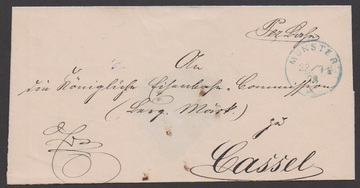 Per Bahn
MÜNSTER
An
die Königliche Eisenbahn-Commission
(Berg. Märk.)
zu
Cassel